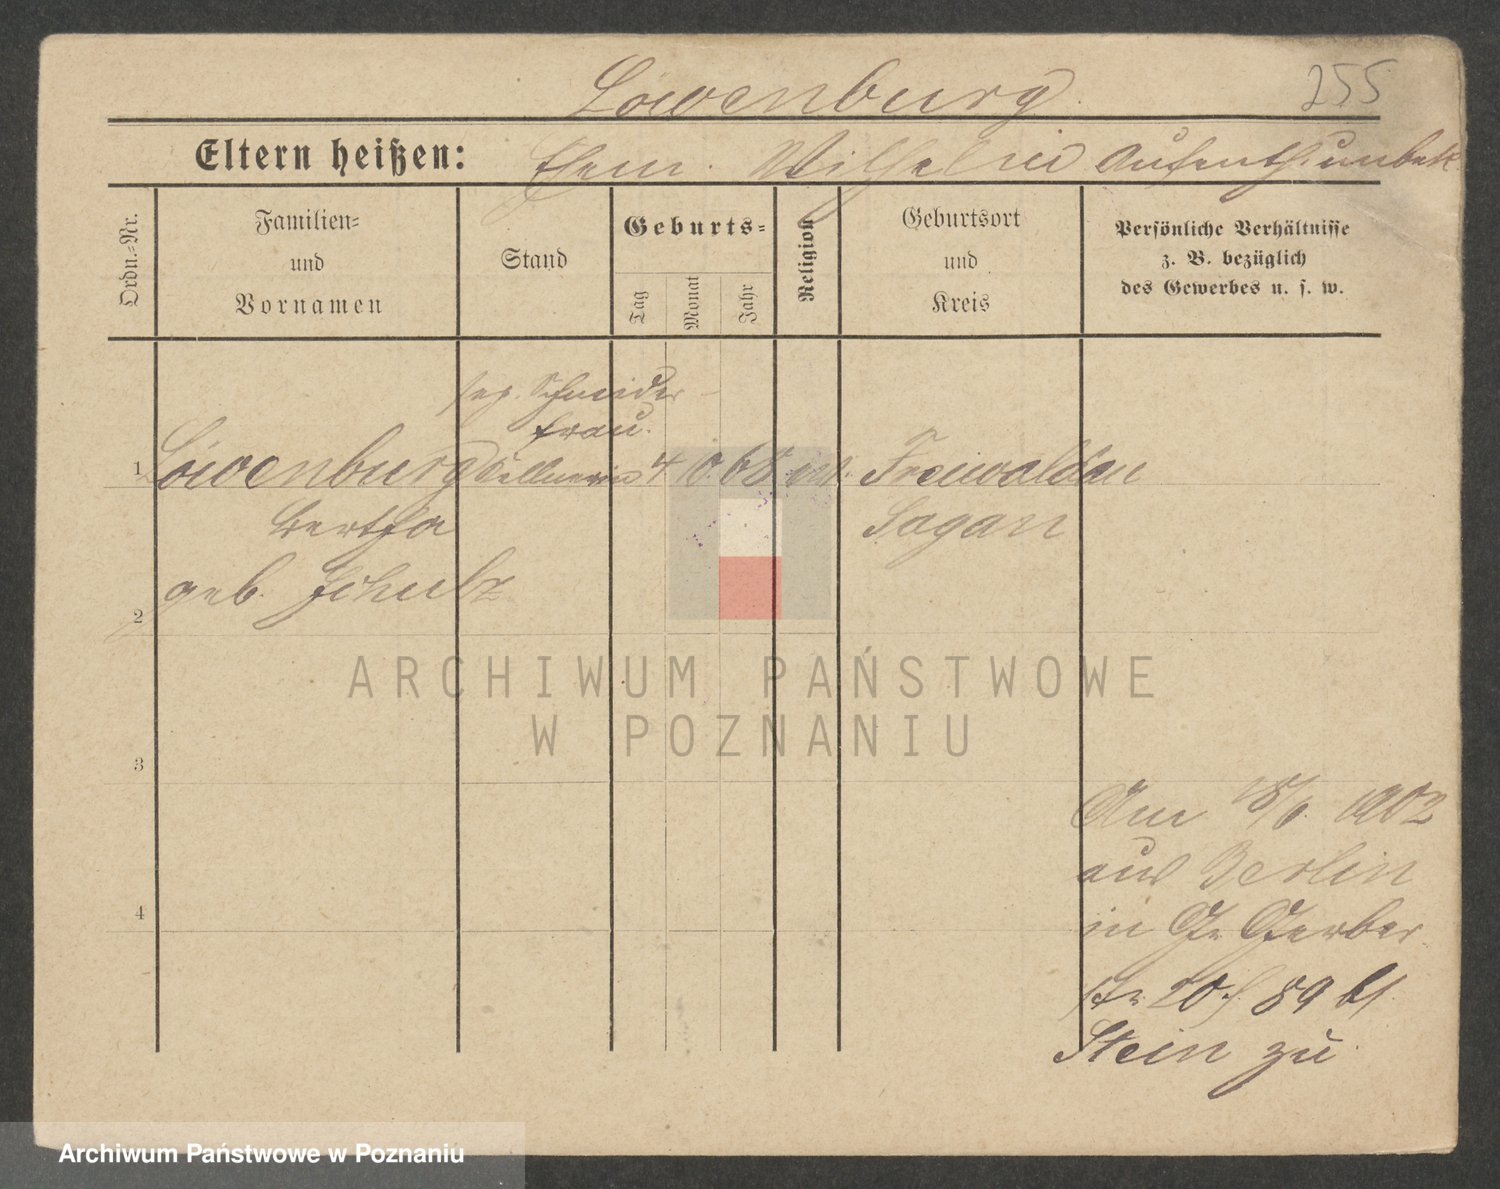 Löwenburg
255
Eltern heißen: Ehem. Wilhelm Aufenth. unbek.
Ordn.-Nr.
Familien-
und
Vornamen
Stand
Geburts-
Tag
Monat
Jahr
Religion
Geburtsort
und
Kreis
Persönliche Verhältnisse
z. B. bezüglich
des Gewerbes u. s. w.
Schneider
frau.
1 Löwenburg Kellnerin 4 10 68 Freiwaldau
Bertha Sagan
geb. Schulz
2
3
4
Am 18/6. 1902
aus Berlin
in Gr. Gerber
str. 20 f. 89 bf
Stein zu
ARCHIWUM PAŃSTWOWE
W POZNANIU
Archiwum Państwowe w Poznaniu